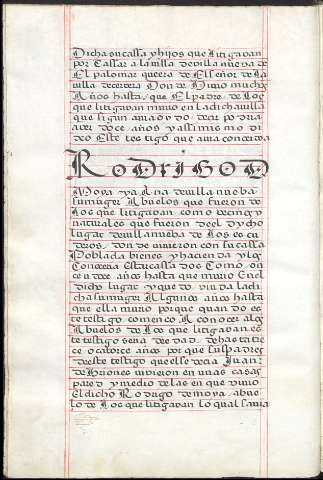 Dicha su cassa y hijos que litigavan
por Cassar a la villa de villa nueva de
El palomar que era de El señor de la
villa de cervera Don de Vivio mucho
Años hasta que El padre de los
que litigavan murio en la dicha villa
que sigun a mas oydo decir podra
aver doce años y assi mismo di
xo Este testigo que avia conocido
Rodrigo D
Moya y a Ana de villa nueba
su muger Abuelos que fueron de
Los que litigavan como vecinos y
naturales que fueron de el dicho
lugar de villa nueba de Los es cu
deros, don de vivieron con su cassa
Poblada bienes y hacienda y los
Conoceria Esta cassa dos como on
ce u doce años hasta que murio en el
dicho lugar y que do viuda la di
cha su muger Algunos años hasta
que ella murio porque quan do es
te testigo comenco A conocer a los
Abuelos de Los que litigavan es
te testigo seria de edad, de hasta tre
ce o catorce años por que su padre
de este testigo que se decia Juan
de Briones vivieron en unas casas
pared y medio de las en que vivio
El dicho Rodrigo de moya, abue
lo de Los que litigavan lo qual savia